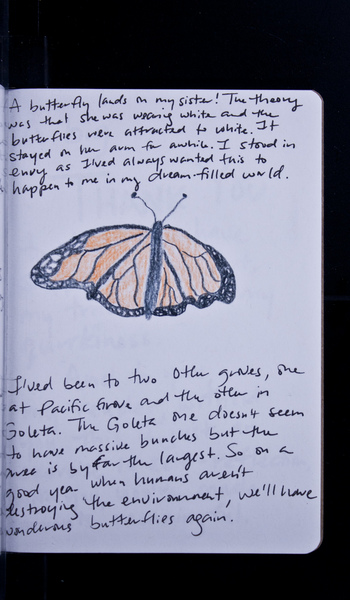 A butterfly lands on my sister! The theory
was that she was wearing white and the
butterflies were attracted to white. It
stayed on her arm for awhile. I stood in
envy as I'lved always wanted this to
happen to me in my dream-filled world.
I'lved been to two other groves, one
at Pacific Grove and the other in
Goleta. The Goleta one doesn't seem
to have massive bunches but the
area is by far the largest. So on a
good year when humans aren't
destroying the environment, we'll have
wonderous butterflies again.